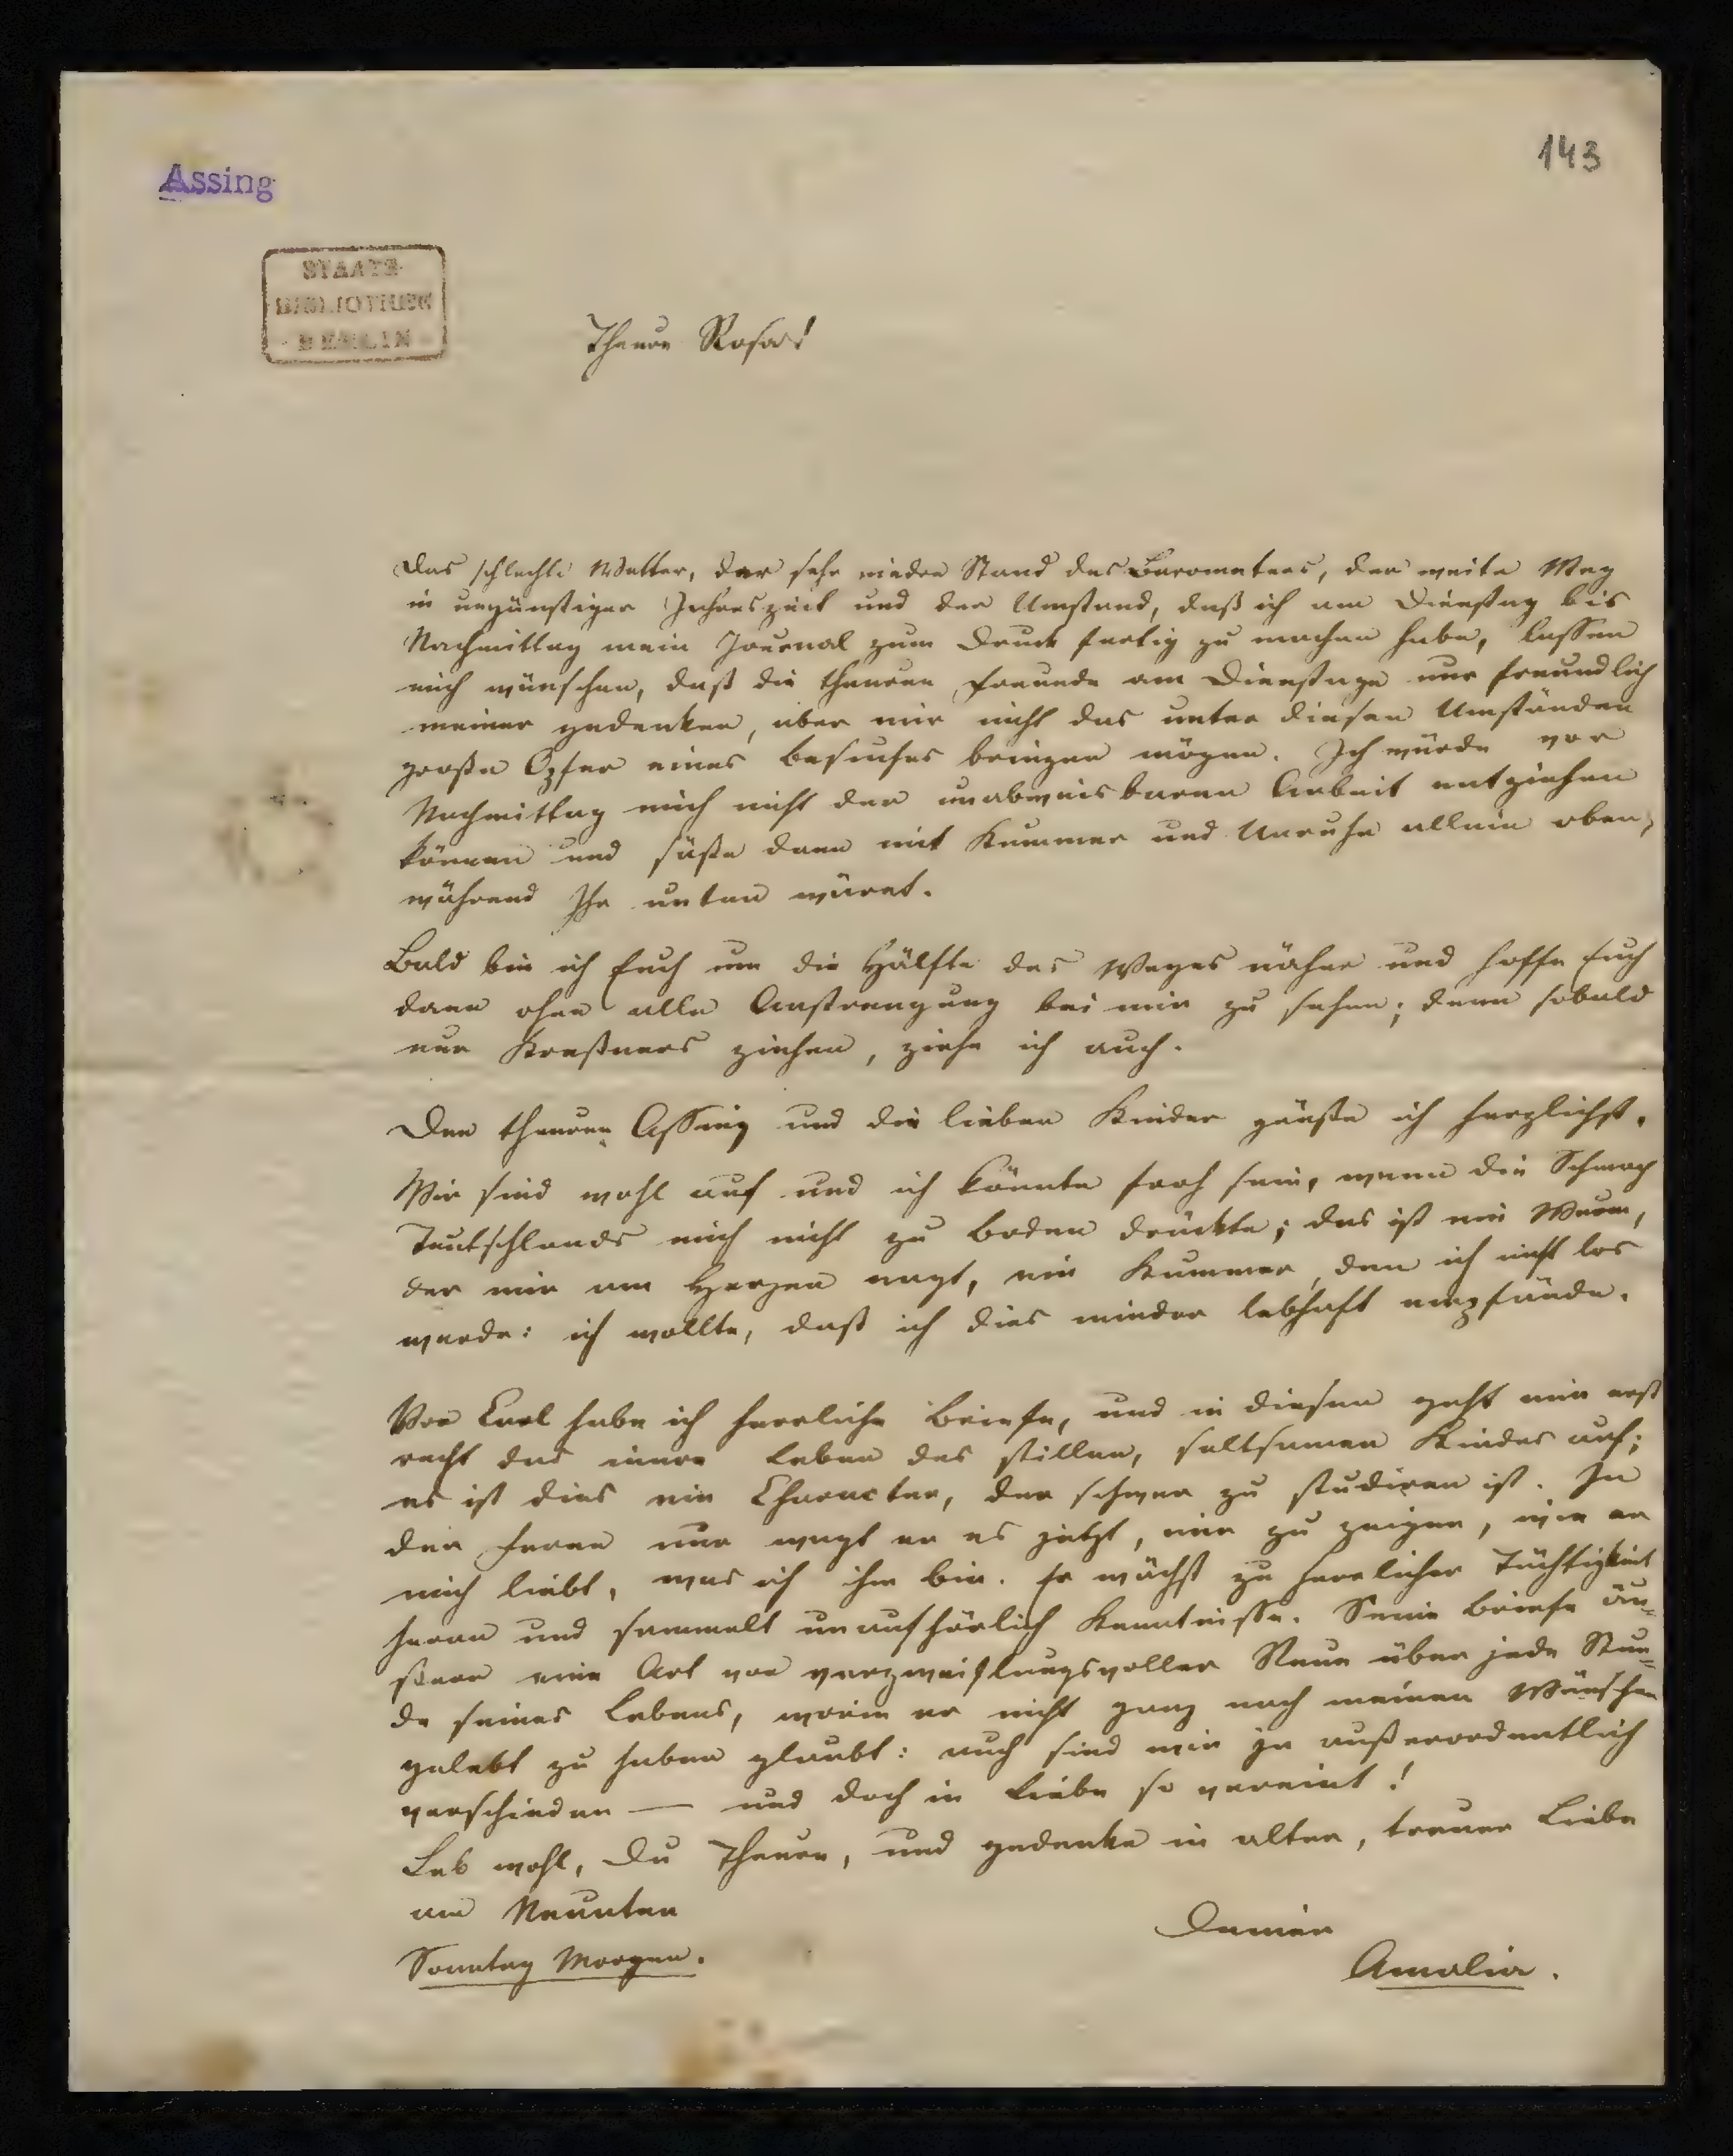 143
Assing
STAATS-
BIBLIOTHEK
BERLIN
Theure Rosa!
Das schlechte Wetter, der sehr niedre Stand des Barometers, der weite Weg
in ungünstiger Jahreszeit und der Umstand, daß ich am Dienstag bis
Nachmittag mein Journal zum Druck fertig zu machen habe, lassen
mich wünschen, daß die theuren Freunde am Dienstage nur freundlich
meiner gedenken, aber mir nicht das unter diesen Umständen
große Opfer eines Besuches bringen mögen. Ich würde vor
Nachmittag mich nicht der unabweisbaren Arbeit entziehen
können und säße dann mit Kummer und Unruhe allein oben,
während Ihr unten wäret.
Bald bin ich Euch um die Hälfte des Weges näher und hoffe Euch
dann ohne alle Anstrengung bei mir zu sehen; denn sobald
nur ziehen, ziehe ich auch.
Den theuren Assing und die lieben Kinder grüße ich herzlichst.
Wir sind wohl auf und ich könnte froh sein, wenn die Schmach
Teutschlands mich nicht zu Boden drückte; das ist ein Wurm,
der mir am Herzen nagt, ein Kummer, den ich nicht los
werde: ich wollte, daß ich dies minder lebhaft empfände.
Von Carl habe ich herrliche Briefe, und in diesen geht mir erst
recht das innere Leben des stillen, seltsamen Kindes auf;
es ist dies ein Character, der schwer zu studiren ist. In
der Ferne nur wagt er es jetzt, mir zu zeigen, wie er
mich liebt, was ich ihm bin. Er wächst zu herrlicher Tüchtigkeit
heran und sammelt unaufhörlich Kenntnisse. Seine Briefe äu-
ßern eine Art von verzweiflungsvoller Reue über jede Stun-
de seines Lebens, worin er nicht ganz nach meinen Wünschen
gelebt zu haben glaubt: auch sind wir ja außerordentlich
verschieden — und doch in Liebe so vereint!
Leb wohl, Du Theure, und gedenke in alter, treuer Liebe
am Neunten
Deiner
Sonntag Morgen.
Amalia.